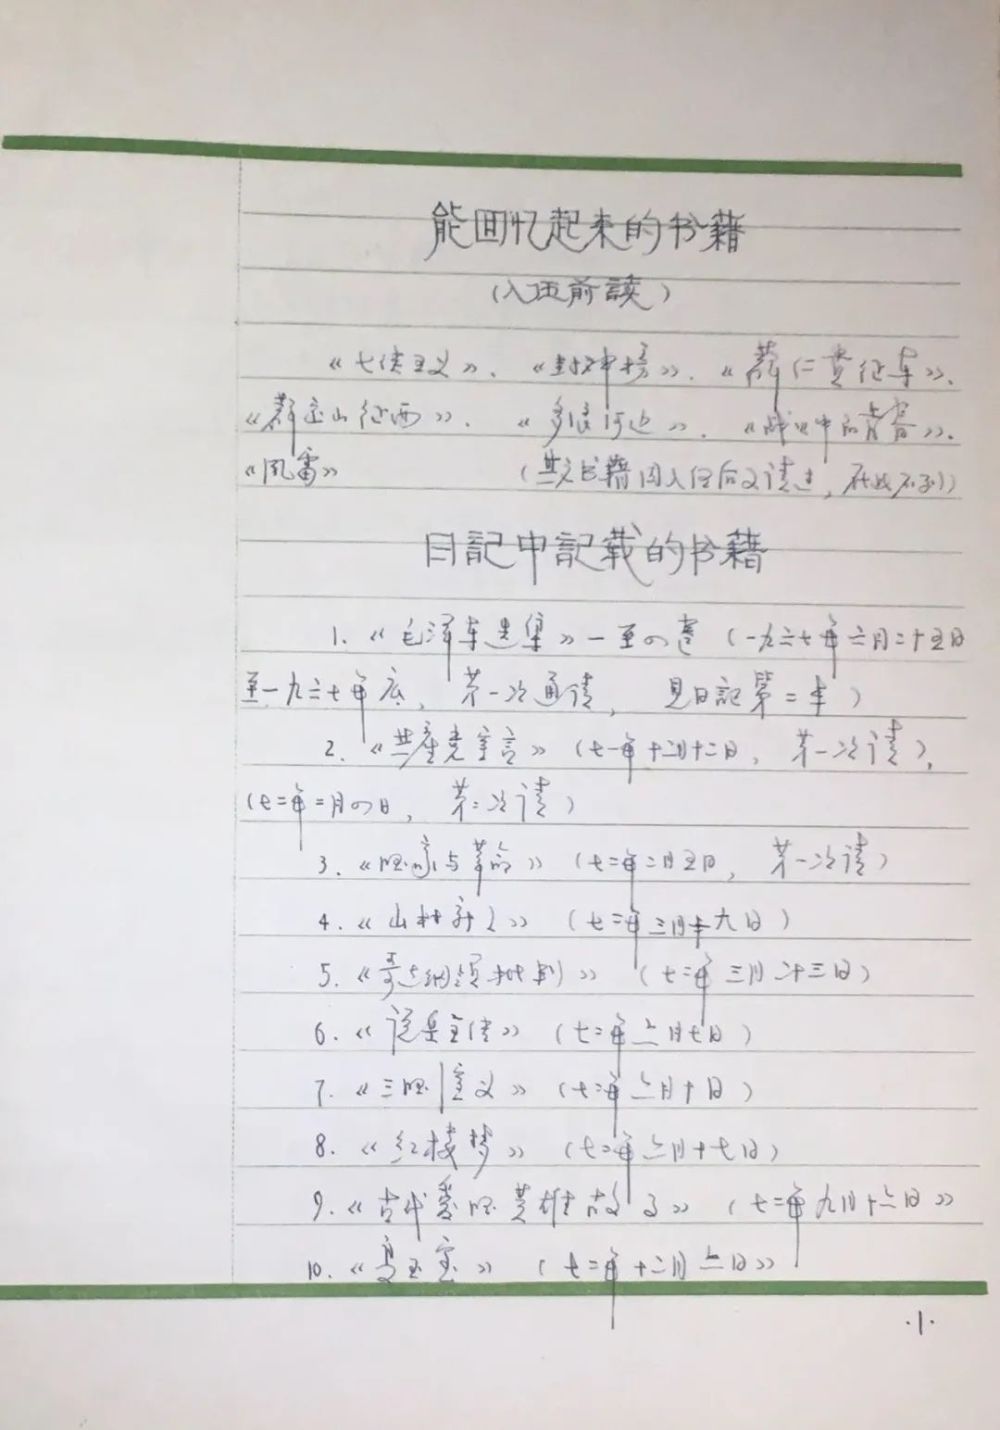 能回忆起来的书籍
(入伍前读)
《七侠五义》、《封神榜》、《薛仁贵征东》、
《薛丁山征西》、《多浪河边》、《战火中的青春》、
《风雷》 (其它书籍因入伍后又读过,在此不列)
日記中記载的书籍
1.《毛泽东选集》一至四卷(一九六七年六月二十五日
至一九六七年底,第一次通读,見日記第二本)
2.《共産党宣言》(七一年十二月十二日,第一次读),
(七二年二月四日,第二次读)
3.《国家与革命》(七二年二月五日,第一次读)
4.《山村新人》(七二年三月十九日)
5.《哥达纲领批判》(七二年三月二十三日)
6.《说岳全传》(七二年六月七日)
7.《三国演义》(七二年六月十日)
8.《红楼梦》(七二年六月十七日)
9.《古代爱国英雄故事》(七二年九月十六日》
10.《夏玉宝》(七二年十二月六日》
·1·